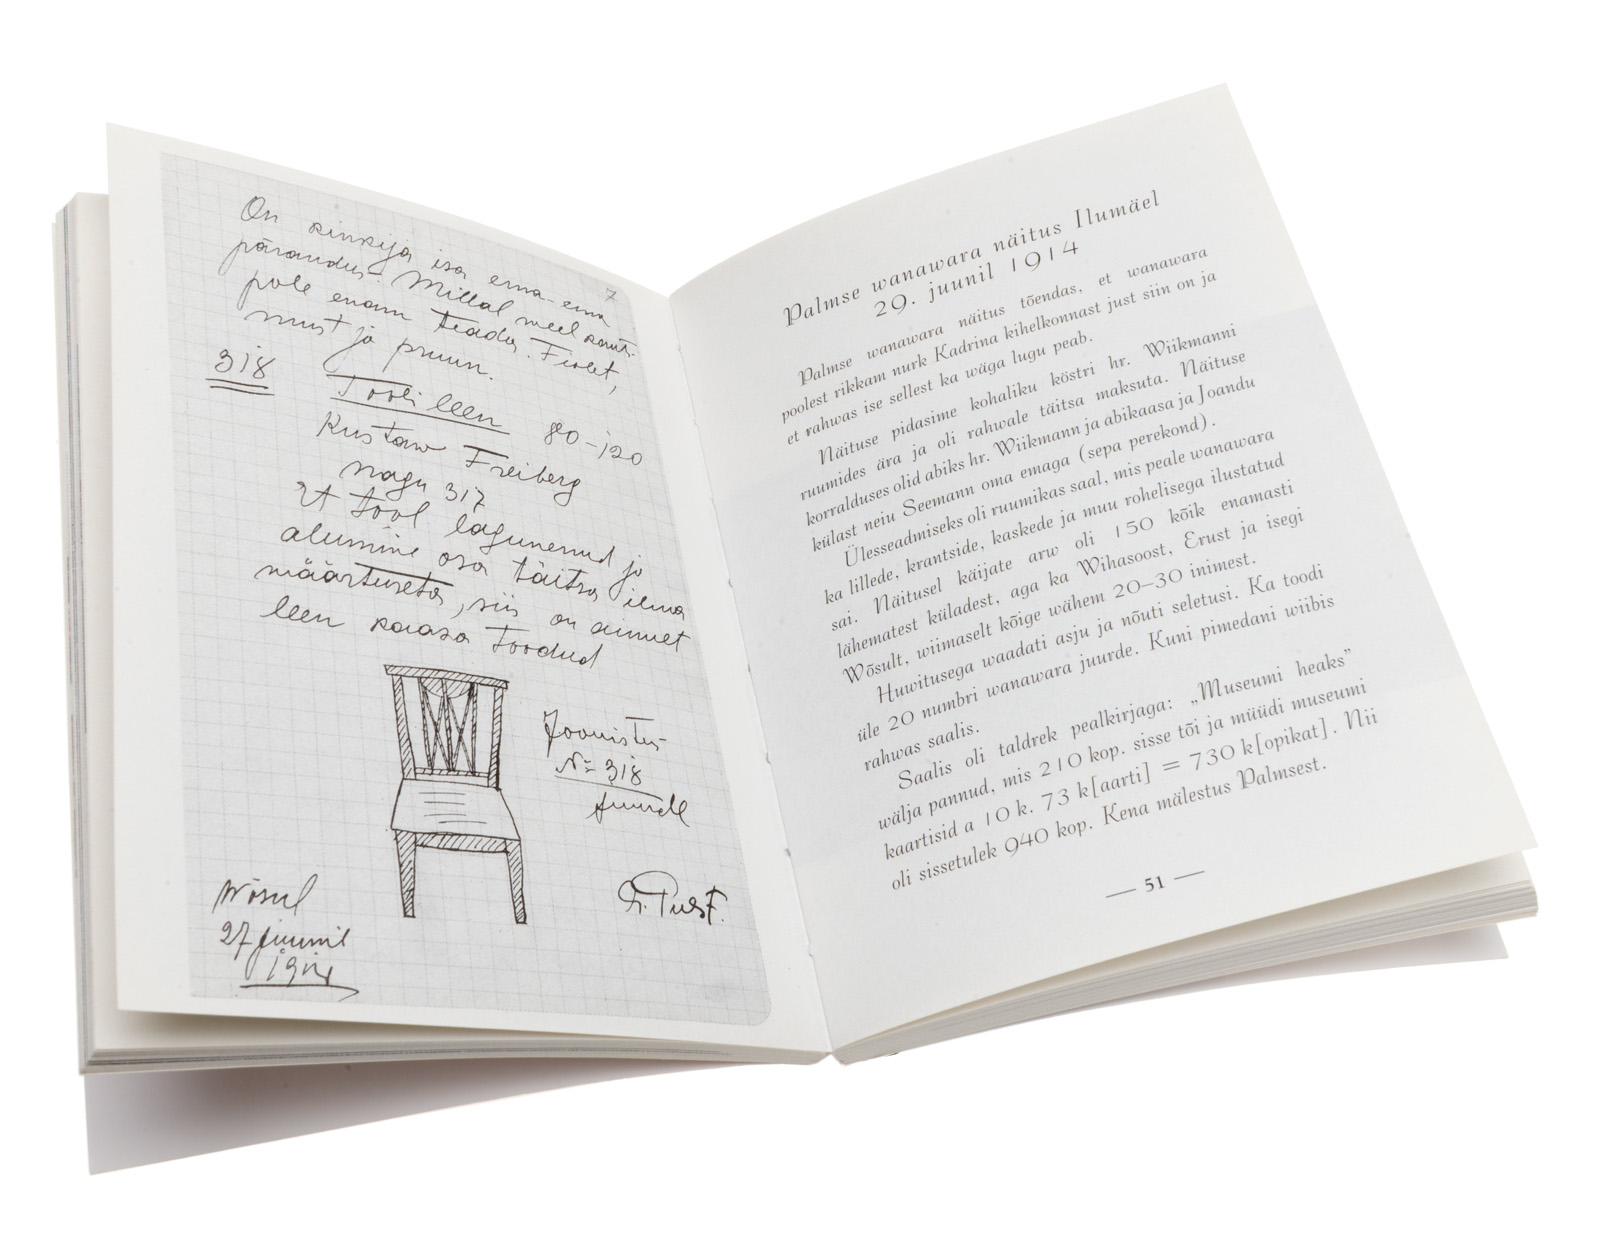 7
On kinkija isa ema-ema
pärandus. Millal weel kant.
pole enam teada. Fiolet,
must ja pruun.
318 Tooli leen 80-120
Kustaw Freiberg
nagu 317
Et tool lagunenud ja
alumine osa täitsa ilma
määrtuseta, siis on ainuet
leen kaasa toodud
Joonistus
№ 318
juurde
Wõsul
27 juunil
1914
Palmse wanawara näitus Ilumäel
29. juunil 1914
Palmse wanawara näitus tõendas, et wanawara
poolest rikkam nurk Kadrina kihelkonnast just siin on ja
et rahwas ise sellest ka wäga lugu peab.
Näituse pidasime kohaliku köstri hr. Wiikmanni
ruumides ära ja oli rahwale täitsa maksuta. Näituse
korralduses olid abiks hr. Wiikmann ja abikaasa ja Joandu
külast neiu Seemann oma emaga (sepa perekond).
Ülesseadmiseks oli ruumikas saal, mis peale wanawara
ka lillede, krantside, kaskede ja muu rohelisega ilustatud
sai. Näitusel käijate arw oli 150 kõik enamasti
lähematest küladest, aga ka Wihasoost, Erust ja isegi
Wõsult, wiimaselt kõige wähem 20–30 inimest.
Huwitusega waadati asju ja nõuti seletusi. Ka toodi
üle 20 numbri wanawara juurde. Kuni pimedani wiibis
rahwas saalis.
Saalis oli taldrek pealkirjaga: „Museumi heaks”
wälja pannud, mis 210 kop. sisse tõi ja müüdi museumi
kaartisid a 10 k. 73 k[aarti] = 730 k[opikat]. Nii
oli sissetulek 940 kop. Kena mälestus Palmsest.
— 51 —